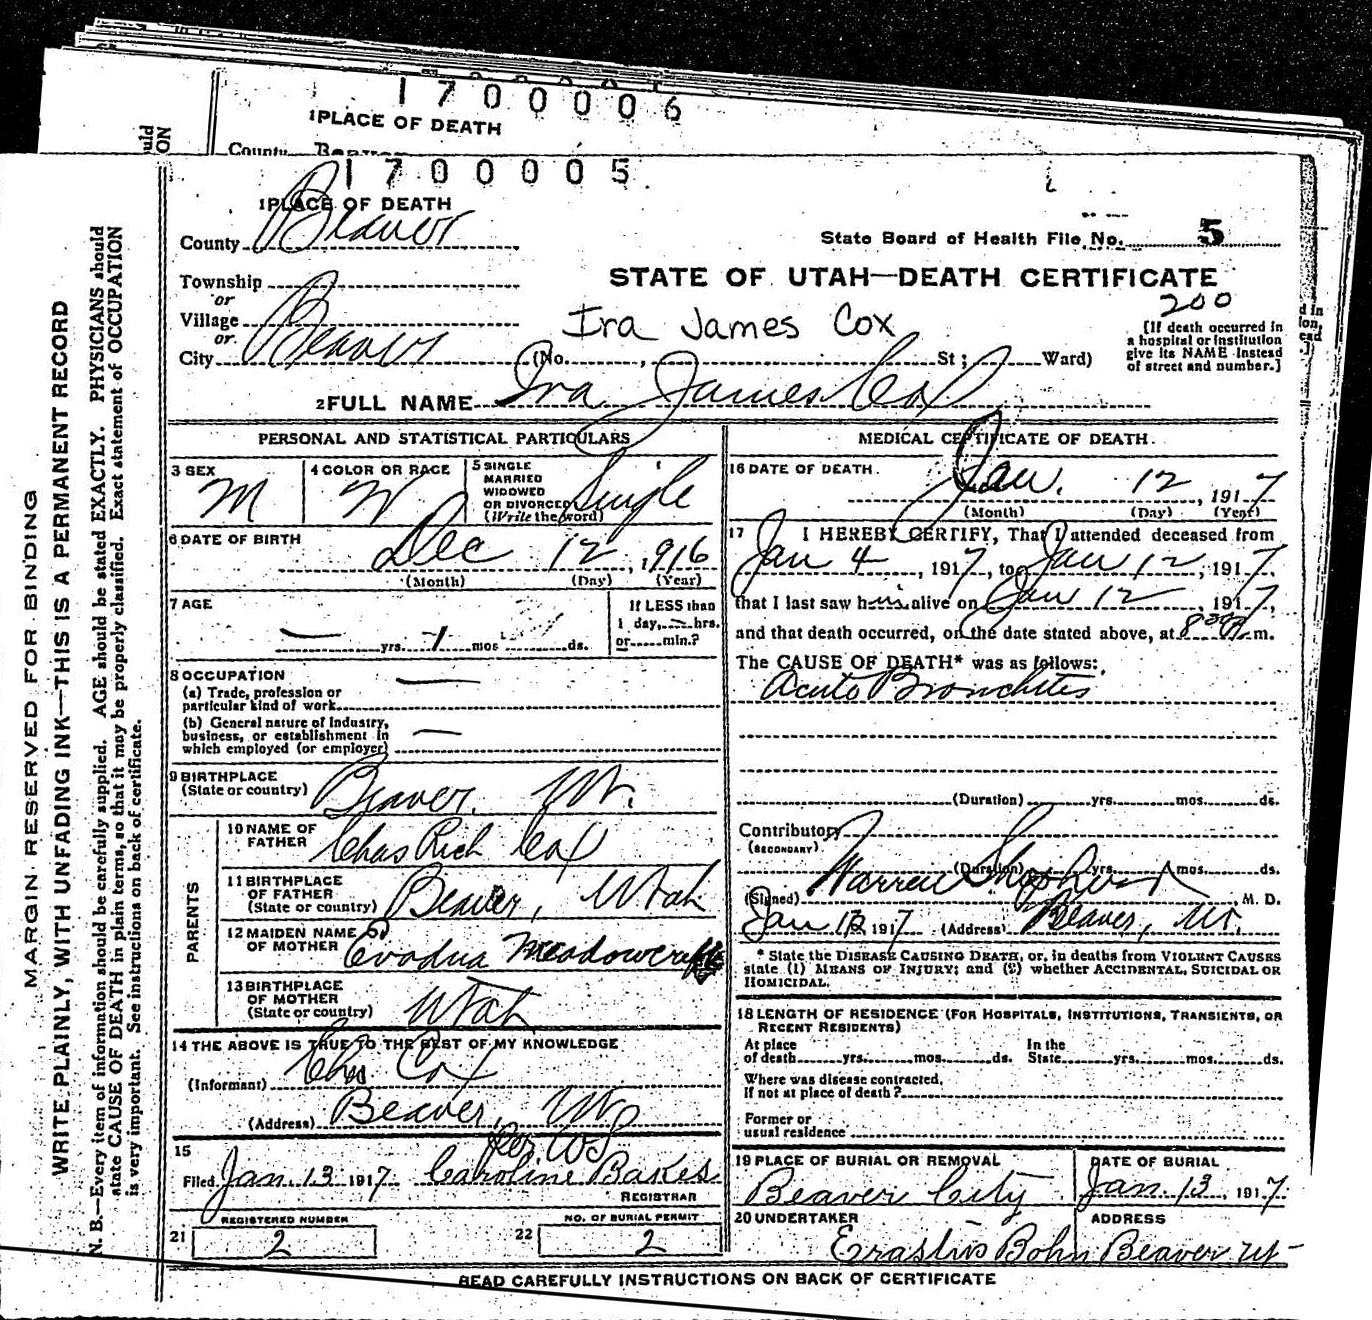 1700006
1 PLACE OF DEATH
County
1700005
1 PLACE OF DEATH
County Beaver
State Board of Health File No. 5
Township
STATE OF UTAH—DEATH CERTIFICATE
or
200
Village
Ira James Cox
or
City Beaver (No. , St; Ward)
[If death occurred in
a hospital or institution
give its NAME instead
of street and number.]
2 FULL NAME Ira James Cox
PERSONAL AND STATISTICAL PARTICULARS
3 SEX
M
4 COLOR OR RACE
W
5 SINGLE
MARRIED
WIDOWED
OR DIVORCED
(Write the word)
Single
6 DATE OF BIRTH
Dec 12, 1916
(Month) (Day) (Year)
7 AGE
— yrs. 1 mos ds.
If LESS than
1 day, — hrs.
or min.?
8 OCCUPATION
(a) Trade, profession or
particular kind of work —
(b) General nature of industry,
business, or establishment in
which employed (or employer) —
9 BIRTHPLACE
(State or country) Beaver. Ut.
PARENTS
10 NAME OF
FATHER Chas Rich Cox
11 BIRTHPLACE
OF FATHER
(State or country) Beaver, Utah
12 MAIDEN NAME
OF MOTHER Evadna
13 BIRTHPLACE
OF MOTHER
(State or country) Utah
14 THE ABOVE IS TRUE TO THE BEST OF MY KNOWLEDGE
(Informant) Chas Cox
(Address) Beaver, Ut
Per WS
15
Filed Jan. 13 1917 Caroline Bakes
REGISTRAR
REGISTERED NUMBER
21 2
NO. OF BURIAL PERMIT
22 2
MEDICAL CERTIFICATE OF DEATH.
16 DATE OF DEATH.
Jan. 12, 1917
(Month) (Day) (Year)
17 I HEREBY CERTIFY, That I attended deceased from
Jan 4, 1917, to Jan 12, 1917,
that I last saw him alive on Jan 12, 1917,
and that death occurred, on the date stated above, at m.
The CAUSE OF DEATH* was as follows:
Acute Bronchites
(Duration) yrs. mos. ds.
Contributory
(SECONDARY)
(Duration) yrs. mos. ds.
(Signed) Warren Shepherd, M. D.
Jan 1917 (Address) Beaver, Ut.
* State the DISEASE CAUSING DEATH, or, in deaths from VIOLENT CAUSES
state (1) MEANS OF INJURY; and (2) whether ACCIDENTAL, SUICIDAL OR
HOMICIDAL.
18 LENGTH OF RESIDENCE (FOR HOSPITALS, INSTITUTIONS, TRANSIENTS, OR
RECENT RESIDENTS)
At place
of death yrs. mos. ds.
In the
State yrs. mos. ds.
Where was disease contracted,
If not at place of death?
Former or
usual residence
19 PLACE OF BURIAL OR REMOVAL
Beaver City
DATE OF BURIAL
Jan. 13, 1917.
20 UNDERTAKER
ADDRESS
Erastus Bohn Beaver Ut
READ CAREFULLY INSTRUCTIONS ON BACK OF CERTIFICATE
MARGIN RESERVED FOR BINDING
WRITE PLAINLY, WITH UNFADING INK—THIS IS A PERMANENT RECORD
N. B.—Every item of information should be carefully supplied. AGE should be stated EXACTLY. PHYSICIANS should
state CAUSE OF DEATH in plain terms, so that it may be properly classified. Exact statement of OCCUPATION
is very important. See instructions on back of certificate.